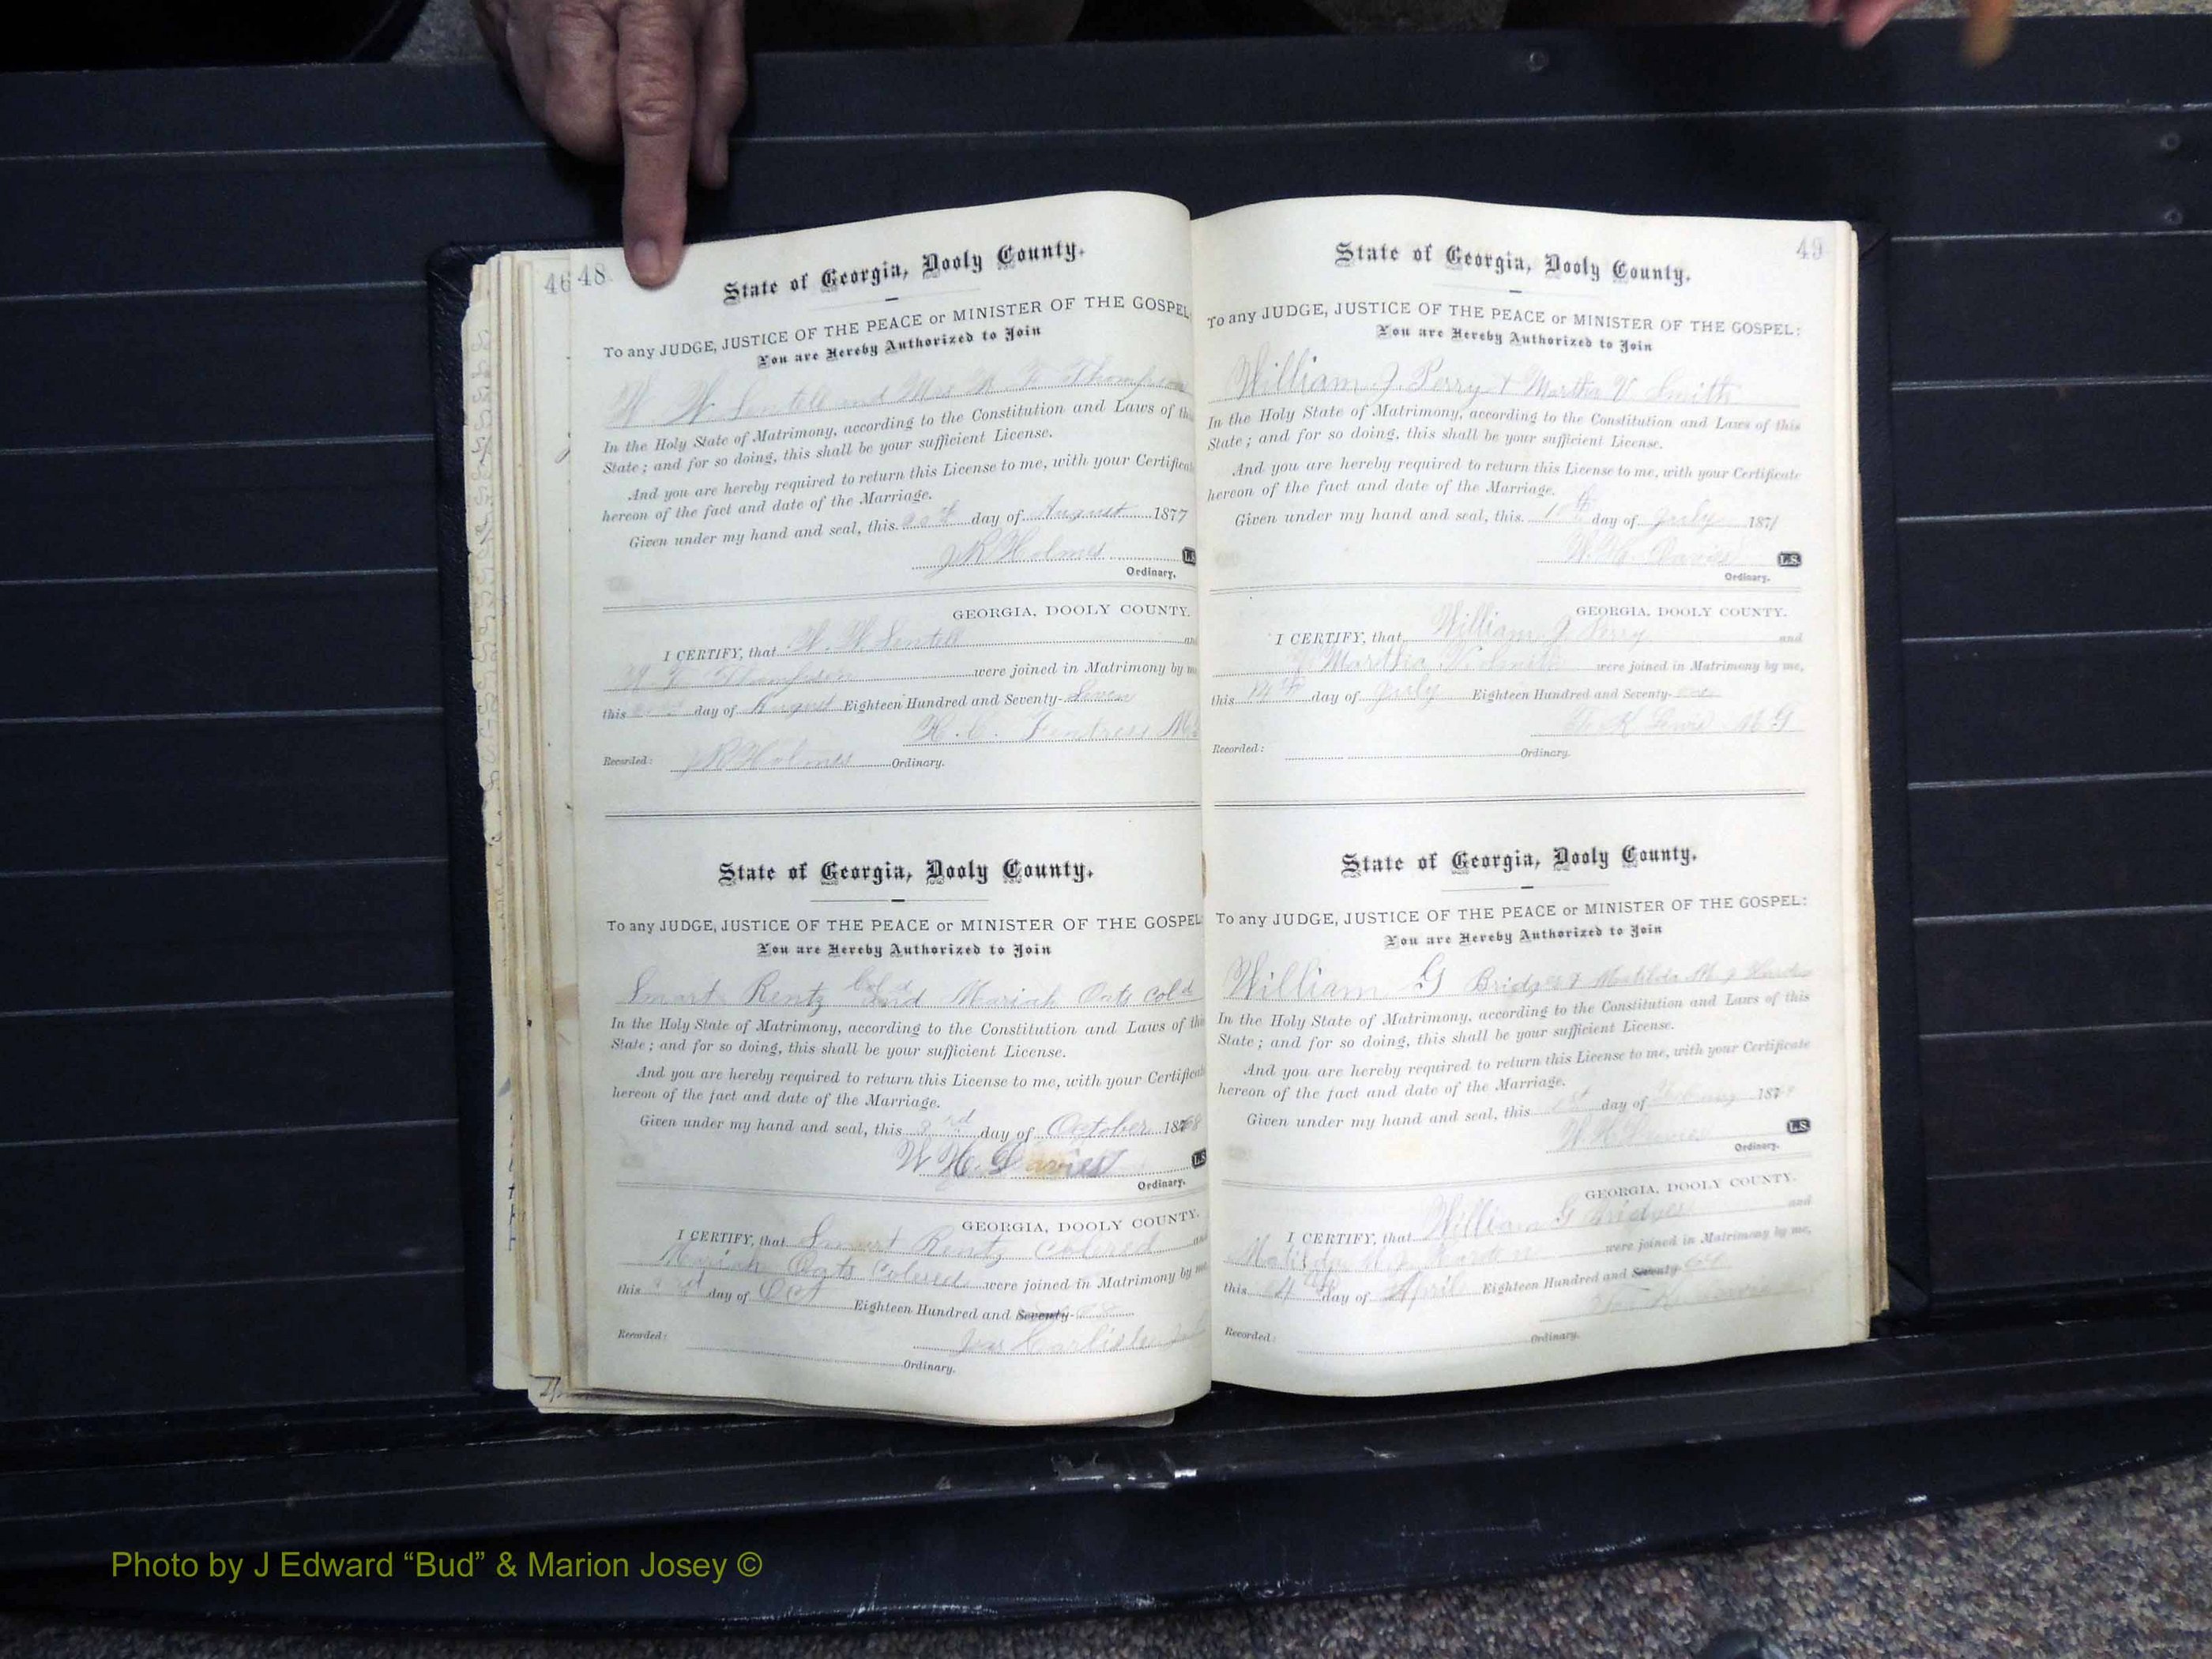 46 48
State of Georgia, Dooly County.
To any JUDGE, JUSTICE OF THE PEACE or MINISTER OF THE GOSPEL:
You are Hereby Authorized to Join
W. W. Sentell and Mrs M. Thompson
In the Holy State of Matrimony, according to the Constitution and Laws of this
State; and for so doing, this shall be your sufficient License.
And you are hereby required to return this License to me, with your Certificate
hereon of the fact and date of the Marriage.
Given under my hand and seal, this 20th day of August 1877
J R Holmes L.S.
Ordinary.
GEORGIA, DOOLY COUNTY.
I CERTIFY, that W. W. Sentell and
Thompson were joined in Matrimony by me
this day of August Eighteen Hundred and Seventy-Seven
H. C. Fentress
Recorded: J R Holmes Ordinary.
State of Georgia, Dooly County.
To any JUDGE, JUSTICE OF THE PEACE or MINISTER OF THE GOSPEL:
You are Hereby Authorized to Join
Smart Rentz Cold and Mariah Oats Cold
In the Holy State of Matrimony, according to the Constitution and Laws of this
State; and for so doing, this shall be your sufficient License.
And you are hereby required to return this License to me, with your Certificate
hereon of the fact and date of the Marriage.
Given under my hand and seal, this 3rd day of October 1868
W H Davies L.S.
Ordinary.
GEORGIA, DOOLY COUNTY.
I CERTIFY, that Smart Rentz Colored and
Mariah Oats Colored were joined in Matrimony by me
this 3rd day of Oct Eighteen Hundred and Seventy-68
Jas Carlisle
Recorded: Ordinary.
49
State of Georgia, Dooly County.
To any JUDGE, JUSTICE OF THE PEACE or MINISTER OF THE GOSPEL:
You are Hereby Authorized to Join
William J. Perry & Martha V Smith
In the Holy State of Matrimony, according to the Constitution and Laws of this
State; and for so doing, this shall be your sufficient License.
And you are hereby required to return this License to me, with your Certificate
hereon of the fact and date of the Marriage.
Given under my hand and seal, this 10th day of July 1871
W. H. Davies L.S.
Ordinary.
GEORGIA, DOOLY COUNTY.
I CERTIFY, that William J Perry and
Martha V Smith were joined in Matrimony by me,
this 14th day of July Eighteen Hundred and Seventy-one
Lewis M G
Recorded: Ordinary.
State of Georgia, Dooly County.
To any JUDGE, JUSTICE OF THE PEACE or MINISTER OF THE GOSPEL:
You are Hereby Authorized to Join
William G Bridges & Matilda M J Harden
In the Holy State of Matrimony, according to the Constitution and Laws of this
State; and for so doing, this shall be your sufficient License.
And you are hereby required to return this License to me, with your Certificate
hereon of the fact and date of the Marriage.
Given under my hand and seal, this day of 187
W H Davies L.S.
Ordinary.
GEORGIA, DOOLY COUNTY.
I CERTIFY, that William G Bridges and
Matilda M J Harden were joined in Matrimony by me,
this 4th day of April Eighteen Hundred and Seventy
Recorded: Ordinary.
Photo by J Edward “Bud” & Marion Josey ©